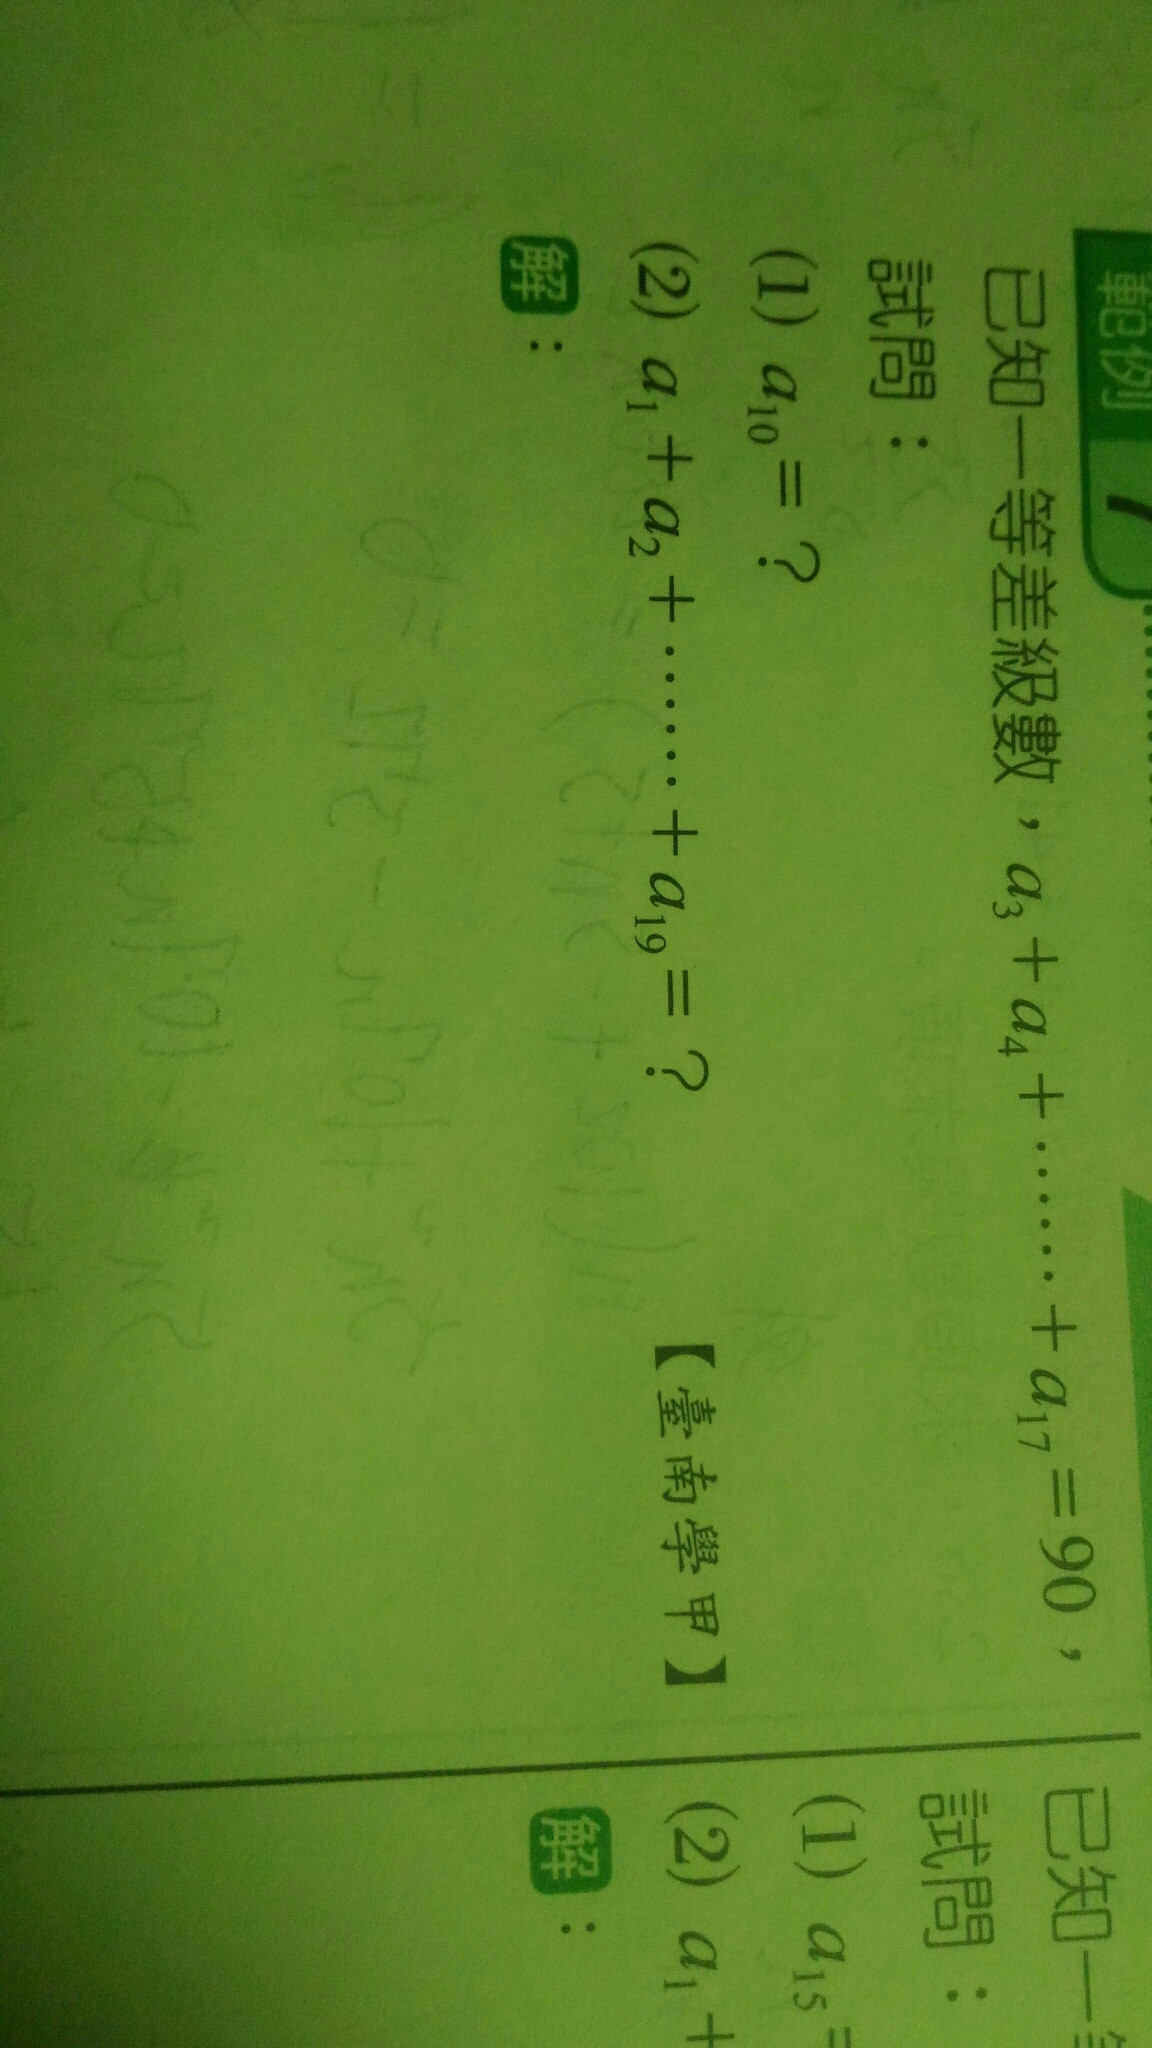 範例 7
已知一等差級數，a₃＋a₄＋……＋a₁₇＝90，
試問：
(1) a₁₀＝？
(2) a₁＋a₂＋……＋a₁₉＝？
【臺南學甲】
解：
已知一等
試問：
(1) a₁₅＝
(2) a₁＋
解：